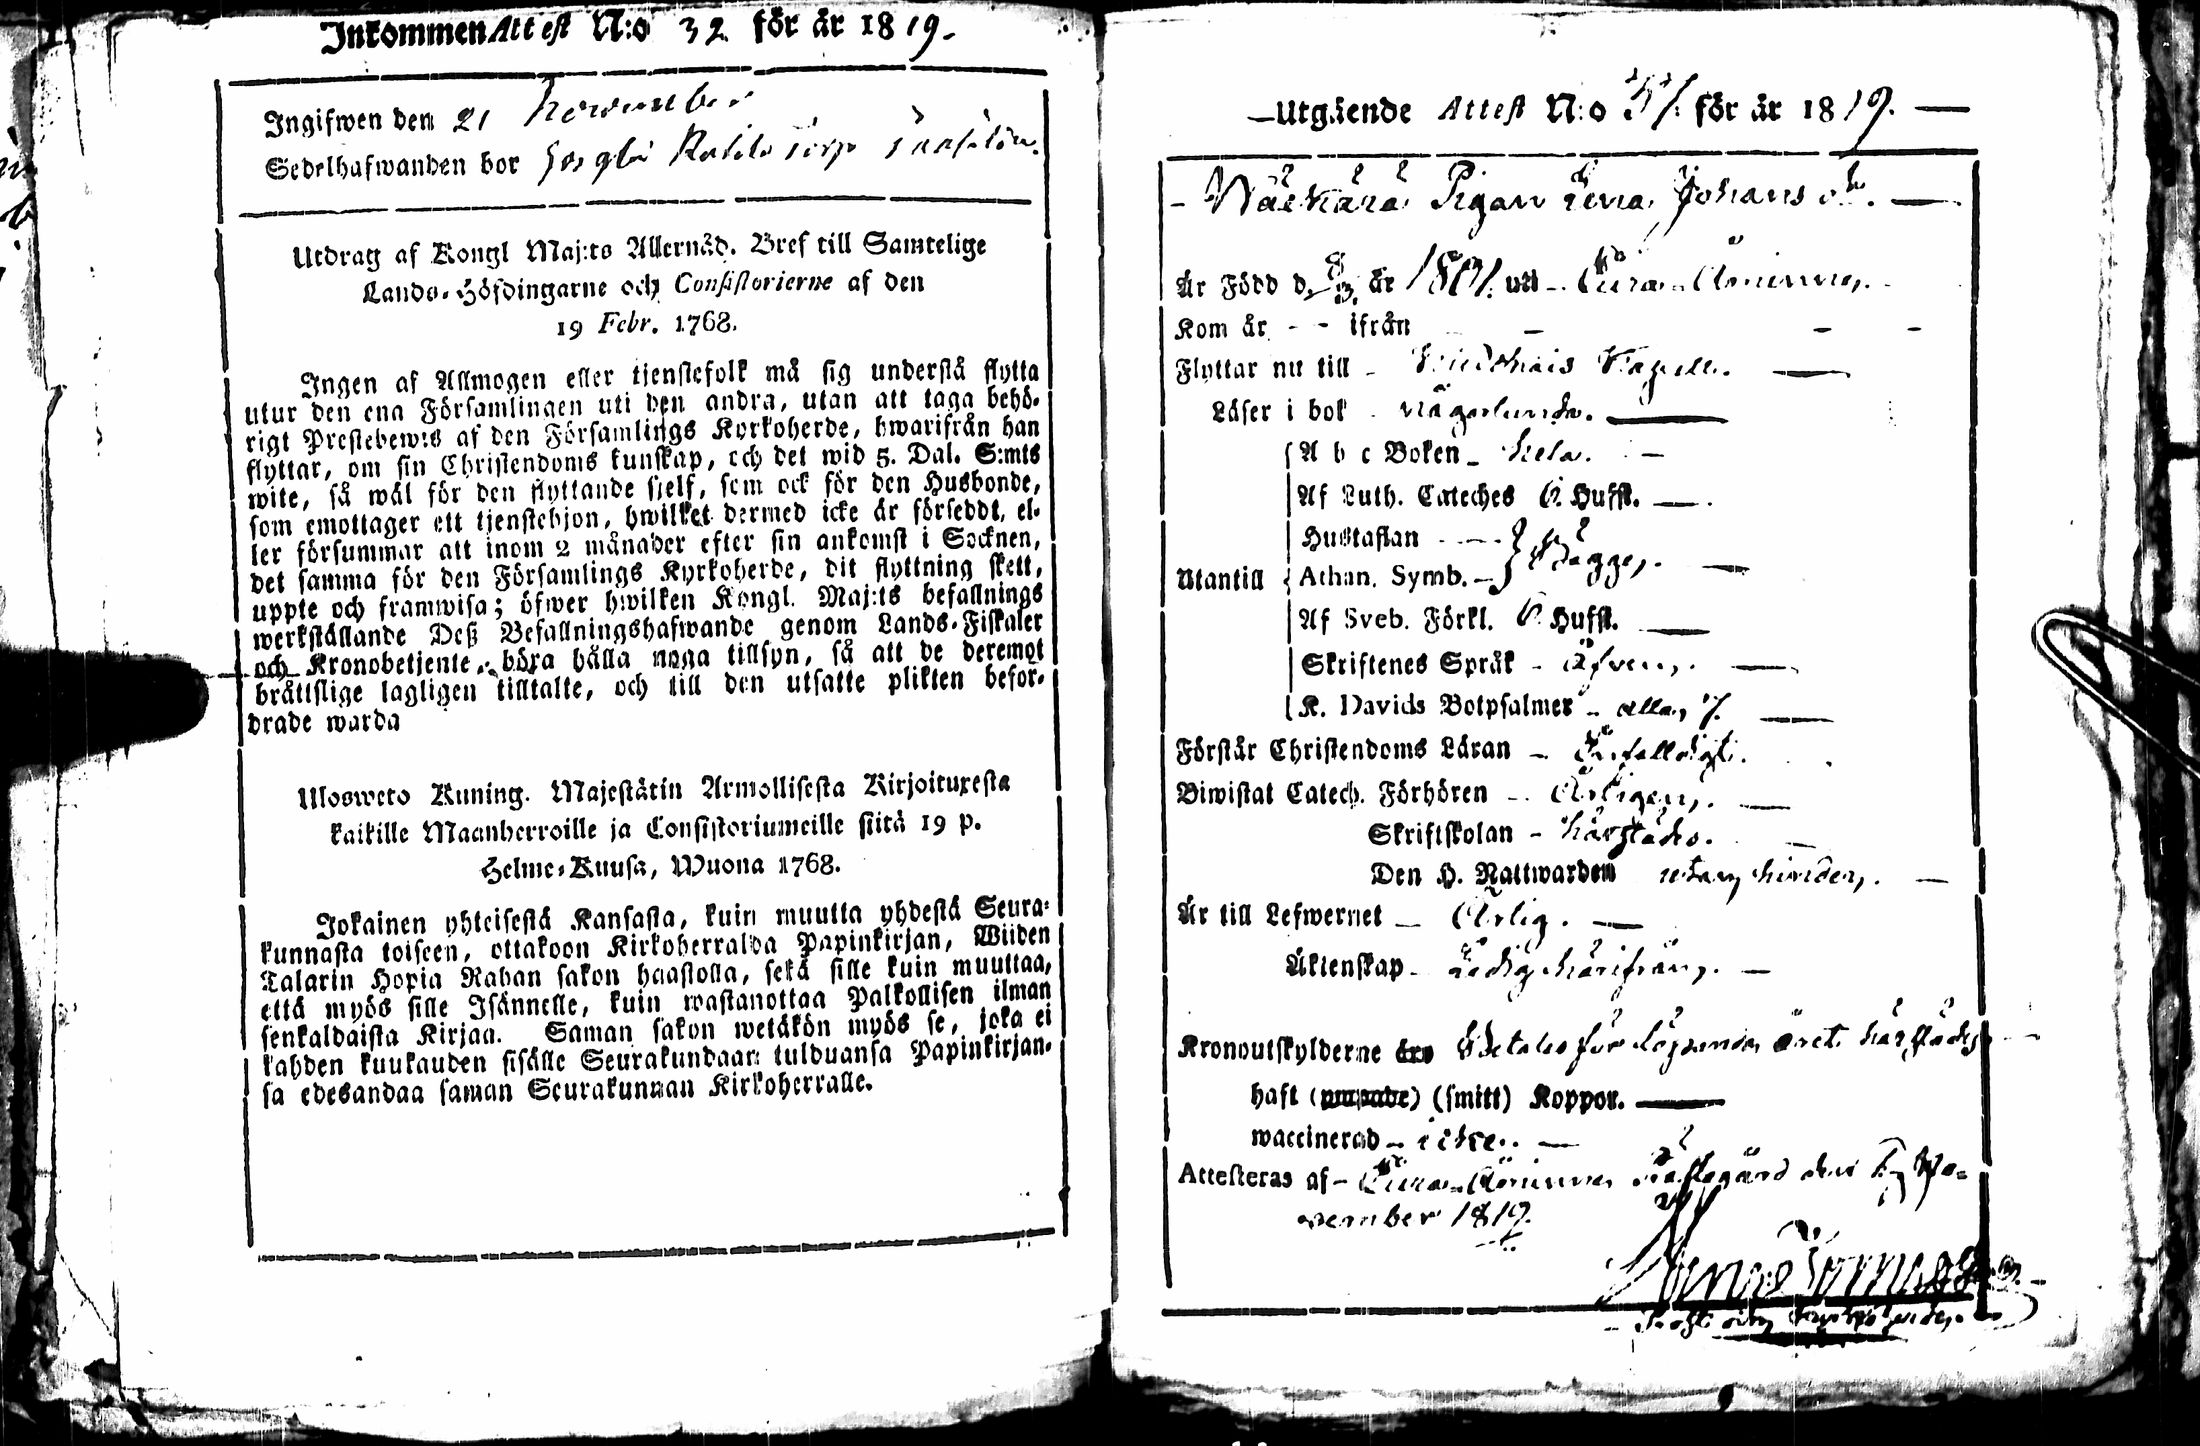 Inkommen Attest N:o 32 för år 1819.
Ingifwen den 21 November
Sedelhafwanden bor hos
Utdrag af Kongl Maj:ts Allernåd. Bref till Samtelige
Lands-Höfdingarne och Consistorierne af den
19 Febr. 1768.
Ingen af Allmogen eller tjenstefolk må sig understå flytta
utur den ena Församlingen uti den andra, utan att taga behö-
rigt Prestebewis af den Församlings Kyrkoherde, hwarifrån han
flyttar, om sin Christendoms kunskap, och det wid 5. Dal. S:mts
wite, så wäl för den flyttande sjelf, som ock för den Husbonde,
som emottager ett tjenstehjon, hwilket dermed icke är förseddt, el-
ler försummar att inom 2 månader efter sin ankomst i Socknen,
det samma för den Församlings Kyrkoherde, dit flyttning skett,
uppte och framwisa; öfwer hwilken Kongl. Maj:ts befallnings
werkställande Deß Befallningshafwande genom Lands-Fiskaler
och Kronobetjente, böra hålla noga tillsyn, så att de deremot
bråttslige lagligen tilltalte, och till den utsatte plikten befor-
drade warda
Ulosweto Kuning. Majestätin Armollisesta Kirjoituxesta
kaikille Maanherroille ja Consistoriumeille siitä 19 p.
Helme-Kuusa, Wuona 1768.
Jokainen yhteisestä Kansasta, kuin muutta yhdestä Seura-
kunnasta toiseen, ottakoon Kirkoherralda Papinkirjan, Wiiden
Talarin Hopia Rahan sakon haastolla, sekä sille kuin muuttaa,
että myös sille Isännelle, kuin wastanottaa Palkollisen ilman
senkaldaista Kirjaa. Saman sakon wetäkön myös se, joka ei
kahden kuukauden sisälle Seurakundaan tulduansa Papinkirjan-
sa edesandaa saman Seurakunnan Kirkoherralle.
Utgående Attest N:o 51. för år 1819.
Pigan Lena Johans dr.
Är Född d. 8/3. år 1801. uti Eura Åminne.
Kom år - - ifrån - - -
Flyttar nu till Kapell.
Läser i bok någorlunda.
A b c Boken hela.
Af Luth. Cateches 6. Hufst.
Hustaflan
Utantill Athan. Symb. Bägge.
Af Sveb. Förkl. 6 Hufst.
Skriftenes Språk äfven.
K. Davids Botpsalmer alla 7.
Förstår Christendoms Läran Enfalldigt.
Biwistat Catech. Förhören Årligen.
Skriftskolan härstädes.
Den H. Nattwarden utan hinder.
Är till Lefwernet Ärlig.
Äktenskap Ledig härifrån.
Kronoutskylderne äro Betalte för löpande året härstädes
haft (wurande) (smitt) Koppor.
waccinerad icke.
Attesteras af Eura Åminne Prästegård den 17 No-
vember 1819.